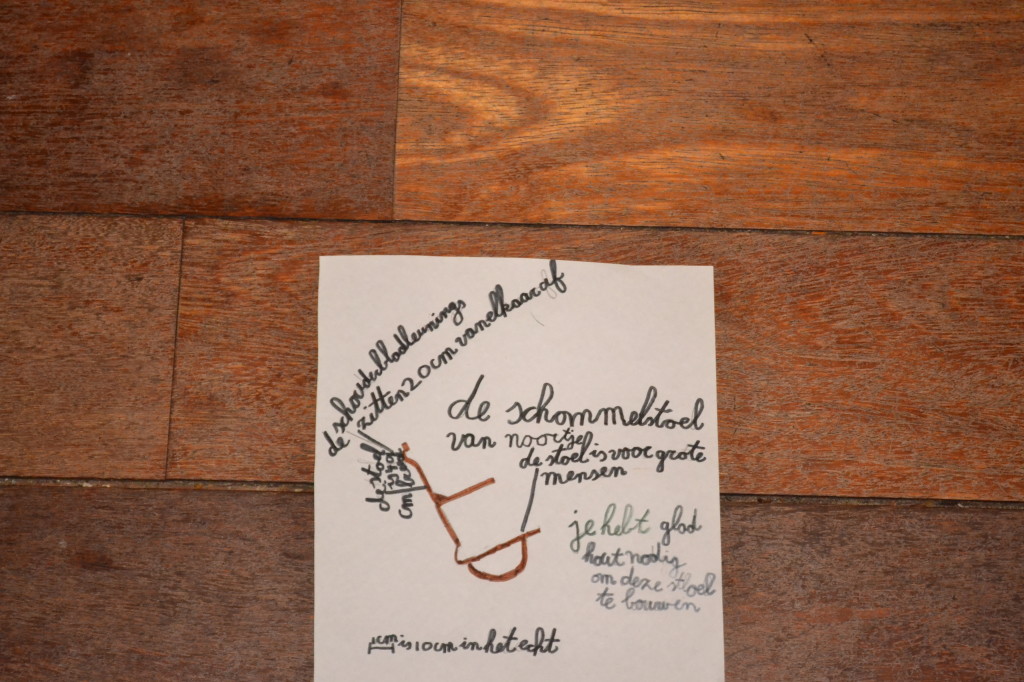 de schouderbladleunings
de zitten 20 cm van elkaar af
de schommelstoel
van noortje
de stoel is voor grote
mensen
de stoel
is 40
cm breed
je hebt glad
hout nodig
om deze stoel
te bouwen
1cm is 10cm in het echt